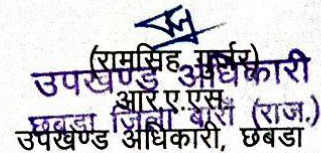 (रामसिंह गुर्जर)
उपखण्ड अधिकारी
आर.ए.एस.
छबडा जिला बारां (राज.)
उपखण्ड अधिकारी, छबडा